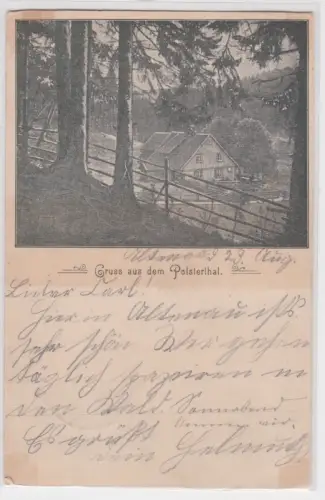 Altenau d 29. Aug.
Gruss aus dem Polsterthal.
Lieber Carl!
Hier in Altenau ist's
sehr schön Wir gehen
täglich spazieren in
den Wald. Sonnabend
wir.
Es grüßt
dein Helmuth